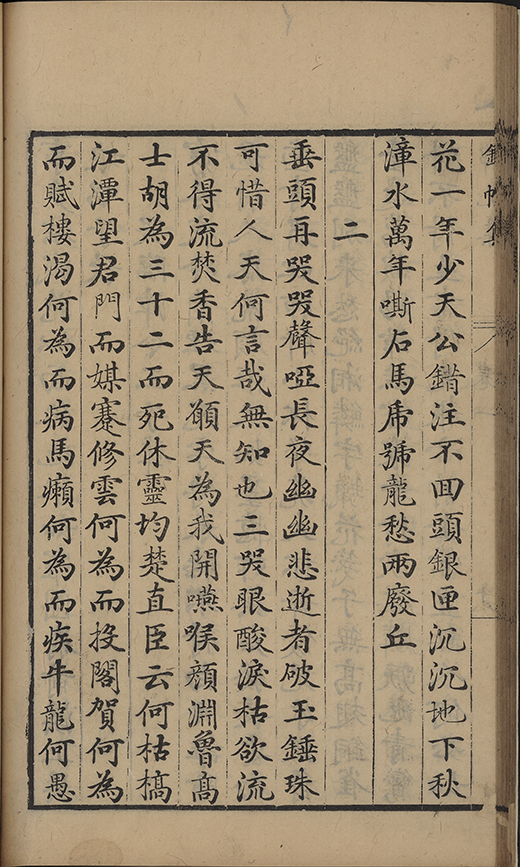 花一年少天公錯注不囬頭銀匣沉沉地下秋
漳水萬年嘶石馬乕號龍愁兩廢丘
二
垂頭再哭哭聲啞長夜幽幽悲逝者破玉錘珠
可惜人天何言哉無知也三哭眼酸淚枯欲流
不得流焚香告天願天為我開嚥喉顔淵魯髙
士胡為三十二而死休靈均楚直臣云何枯槁
江潭望君門而媒蹇修雲何為而投閣賀何為
而賦樓渴何為而病馬癩何為而疾牛龍何愚